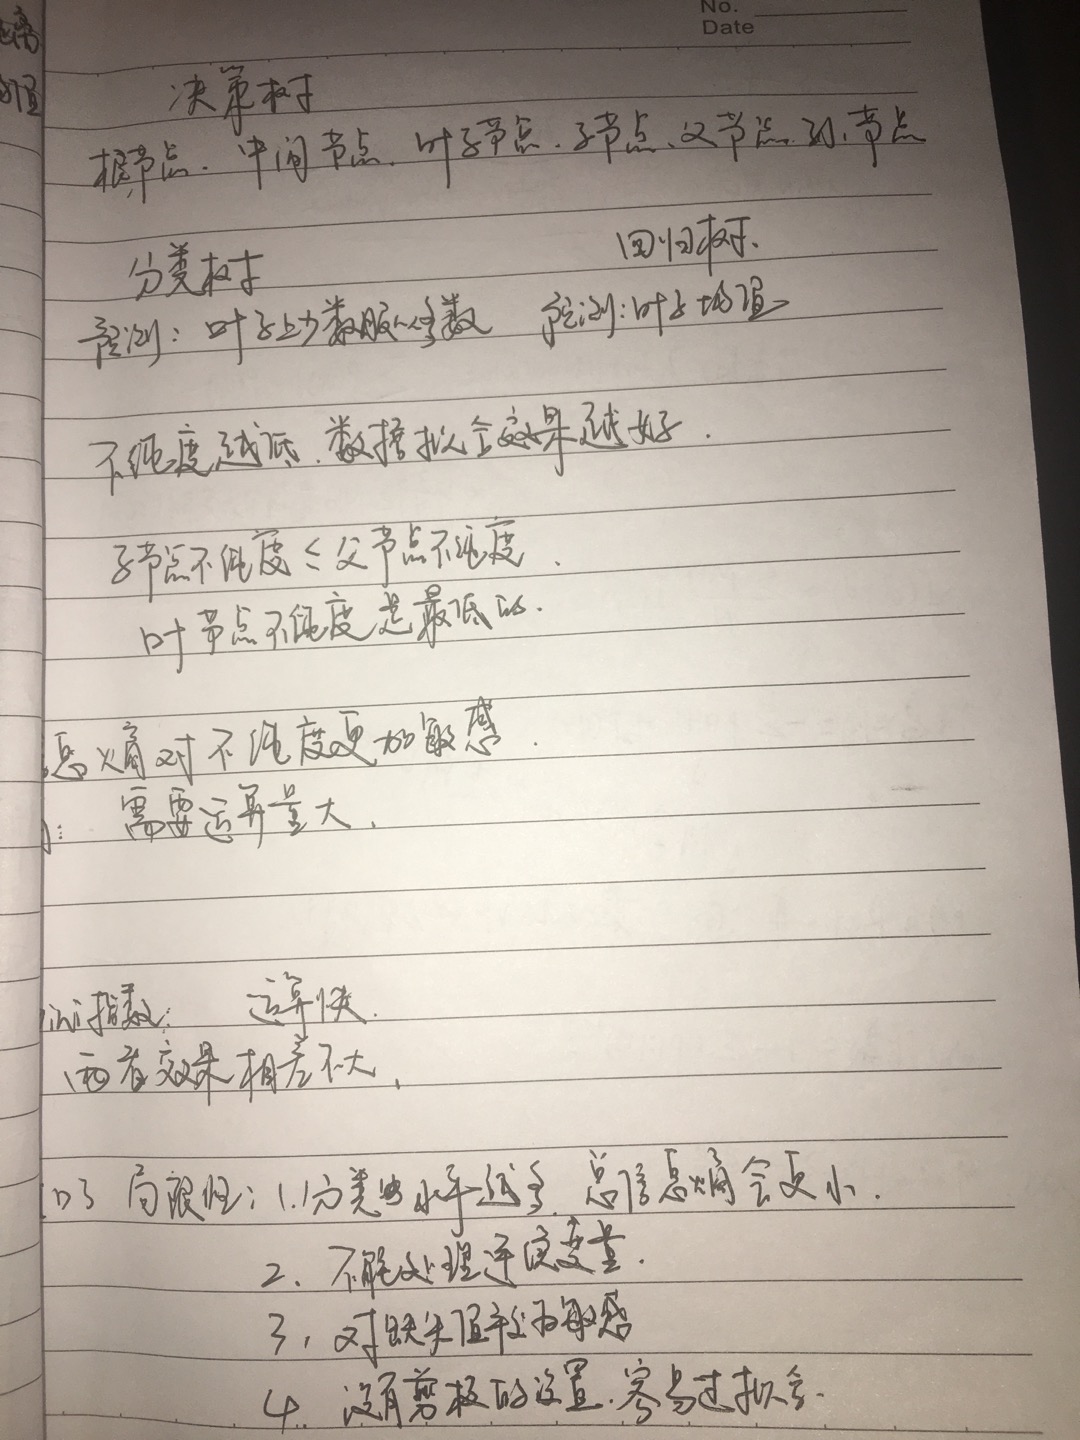 No.
Date
高
值
决策树
根节点、中间节点、叶子节点、子节点、父节点、节点
分类树 回归树、
预测：叶子上少数服从多数 预测：叶子均值
不纯度越低、数据拟合效果越好．
子节点不纯度≤父节点不纯度．
叶节点不纯度是最低的．
息熵对不纯度更加敏感．
： 需要运算量大．
ini指数： 运算快．
两者效果相差不大．
ID3 局限性：1.分类水平越多，总信息熵会更小．
2、不能处理连续变量．
3、对缺失值较为敏感
4、没有剪枝的设置、容易过拟合．